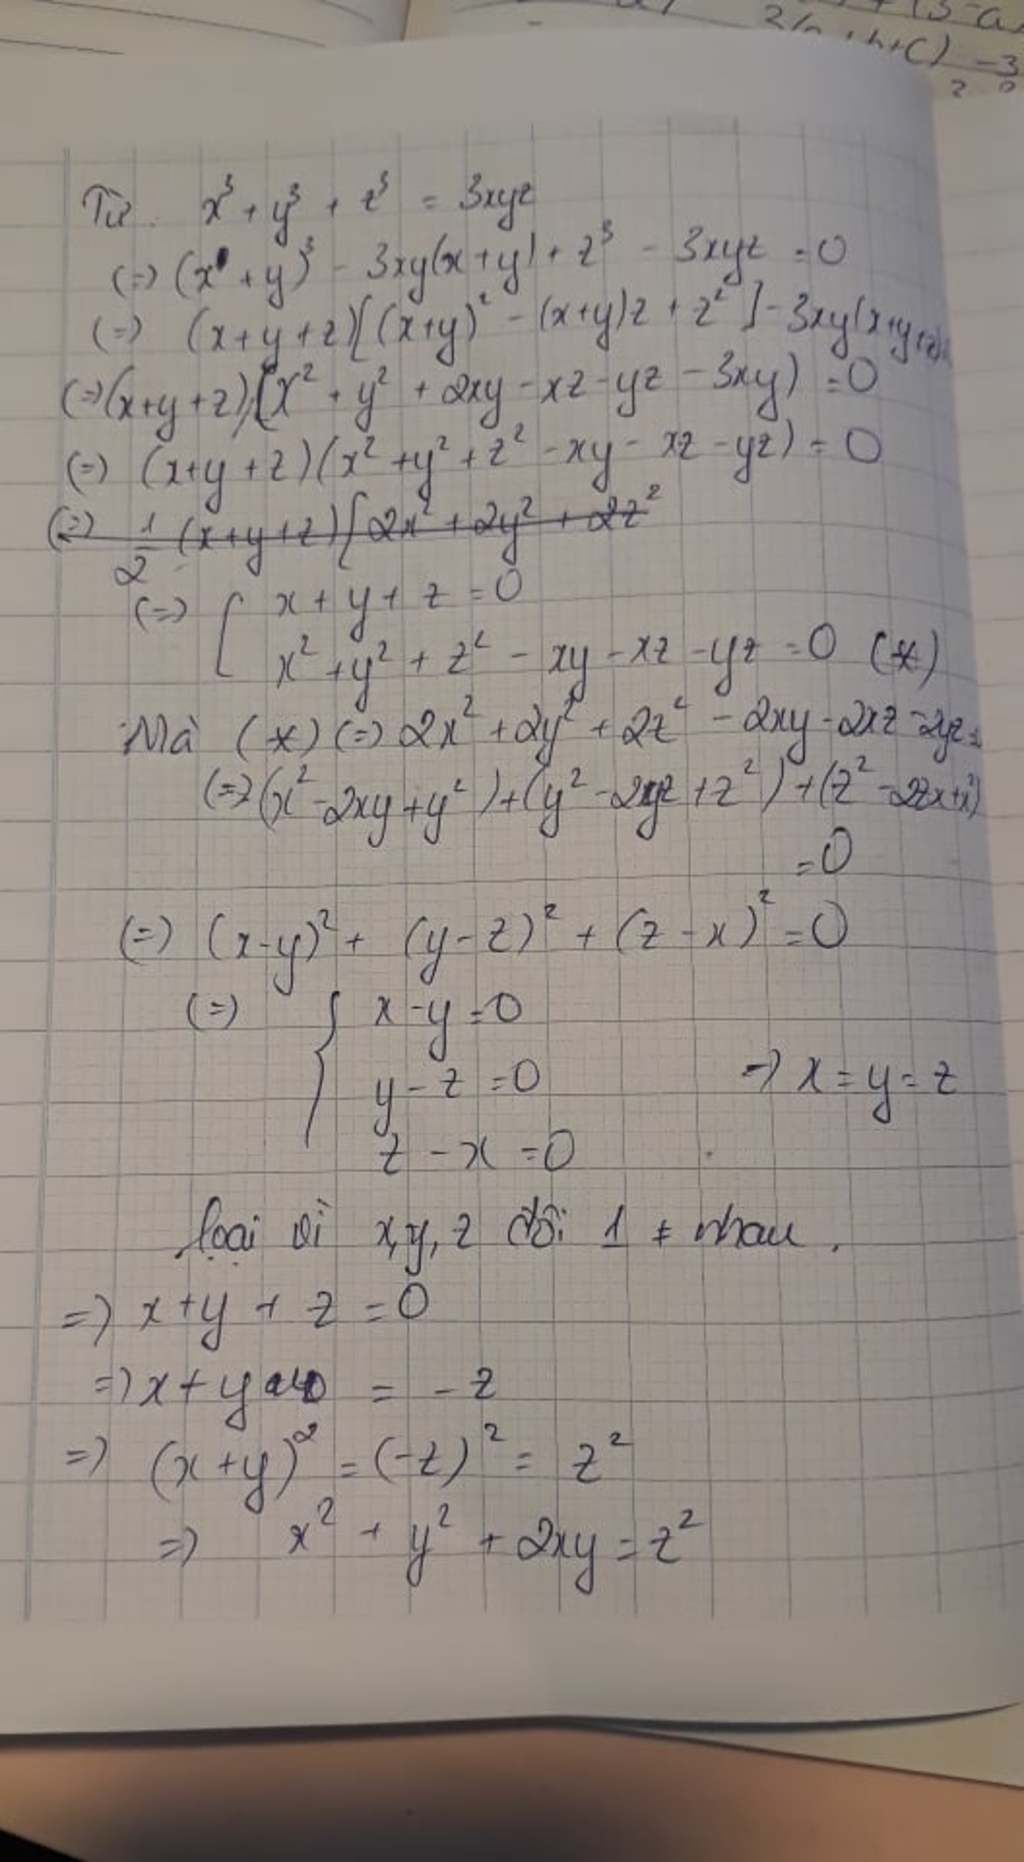 3 - a
2(a+b+c) - 3
2
Từ. x³ + y³ + z³ = 3xyz
(=) (x + y)³ - 3xy(x+y) + z³ - 3xyz = 0
(=) (x+y+z)[(x+y)² - (x+y)z + z²] - 3xy(x+y+z)
(=) (x+y+z)(x² + y² + 2xy - xz - yz - 3xy) = 0
(=) (x+y+z)(x² + y² + z² - xy - xz - yz) = 0
(=) 1/2 (x+y+z)[2x² + 2y² + 2z²
(=) [ x + y + z = 0
x² + y² + z² - xy - xz - yz = 0 (*)
Mà (*) (=) 2x² + 2y² + 2z² - 2xy - 2xz - 2yz =
(=) (x² - 2xy + y²) + (y² - 2yz + z²) + (z² - 2zx + x²)
= 0
(=) (x-y)² + (y-z)² + (z-x)² = 0
(=) { x - y = 0
y - z = 0 => x = y = z
z - x = 0
loại vì x, y, z đôi 1 ≠ nhau.
=> x + y + z = 0
=> x + y = - z
=> (x+y)² = (-z)² = z²
=> x² + y² + 2xy = z²